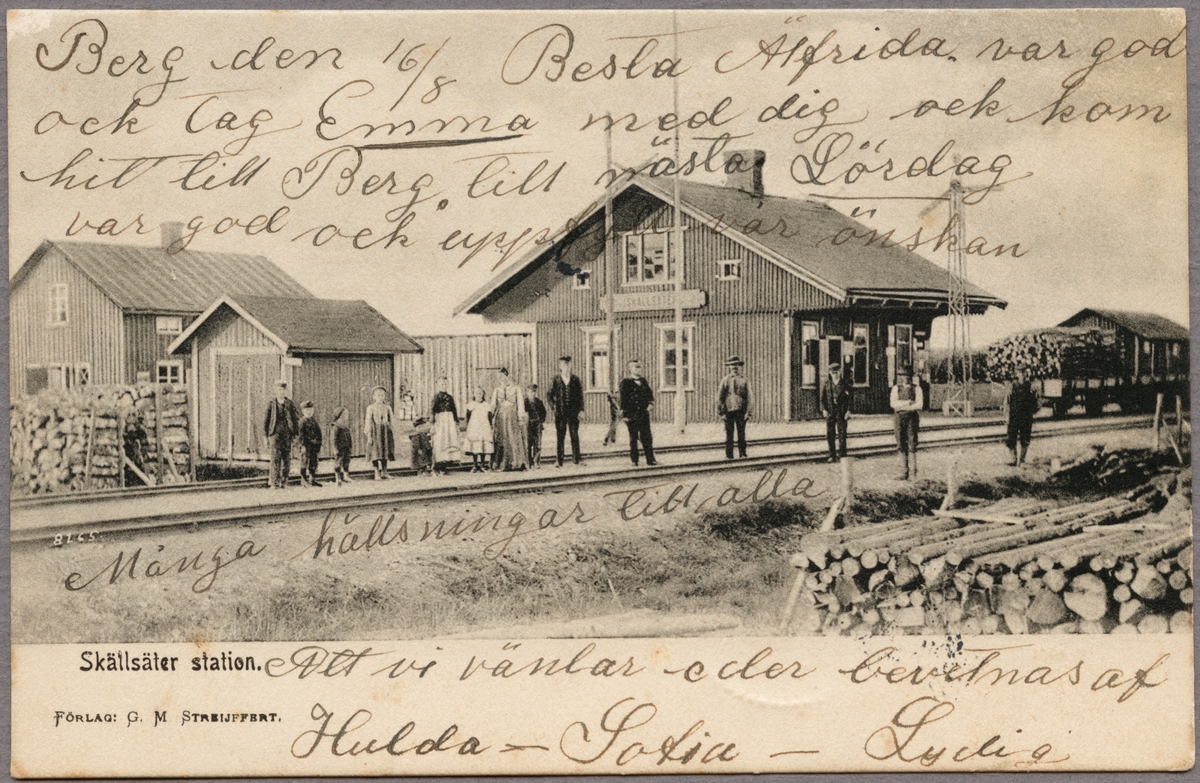 Berg den 16/8 Besta Alfrida. var god
ock tag Emma med dig ock kom
hit till Berg, till nästa Lördag
var god ock uppfyll vår önskan
SKÄLLSÄTER
8765
Många hällsningar till alla
Skällsäter station. Att vi väntar eder bevitnas af
FÖRLAG: G. M STREIJFFERT.
Hulda – Sofia – Lydig